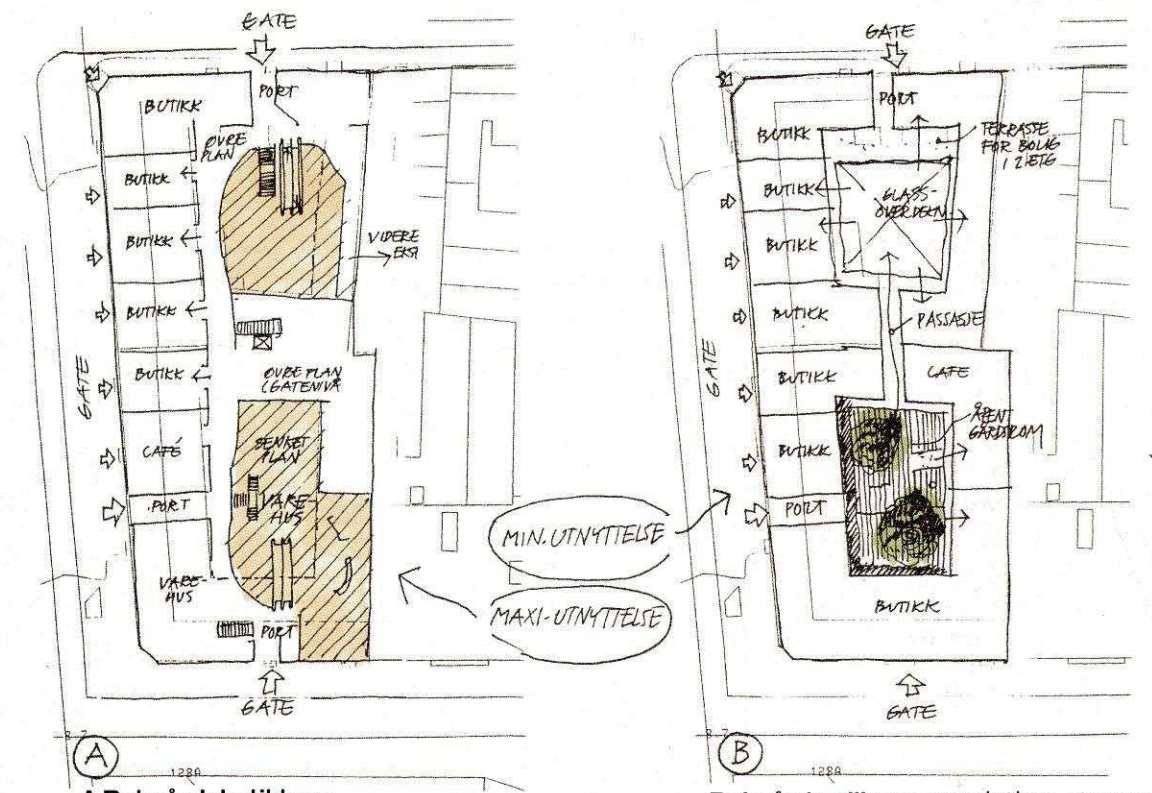 GATE
PORT
BUTIKK
ØVRE
PLAN
BUTIKK
BUTIKK
VIDERE
BUTIKK
BUTIKK
ØVRE PLAN
(GATENIVÅ
GATE
CAFÉ
SENKET
PLAN
VARE-
HUS
PORT
VARE-
HUS
PORT
GATE
A
128A
MIN. UTNYTTELSE
MAXI-UTNYTTELSE
GATE
PORT
BUTIKK
TERRASSE
FOR BOLIG
I 2.ETG
BUTIKK
GLASS-
OVERDEKN
BUTIKK
BUTIKK
PASSASJE
GATE
BUTIKK
CAFE
ÅPENT
GÅRDSROM
BUTIKK
PORT
BUTIKK
GATE
B
128A